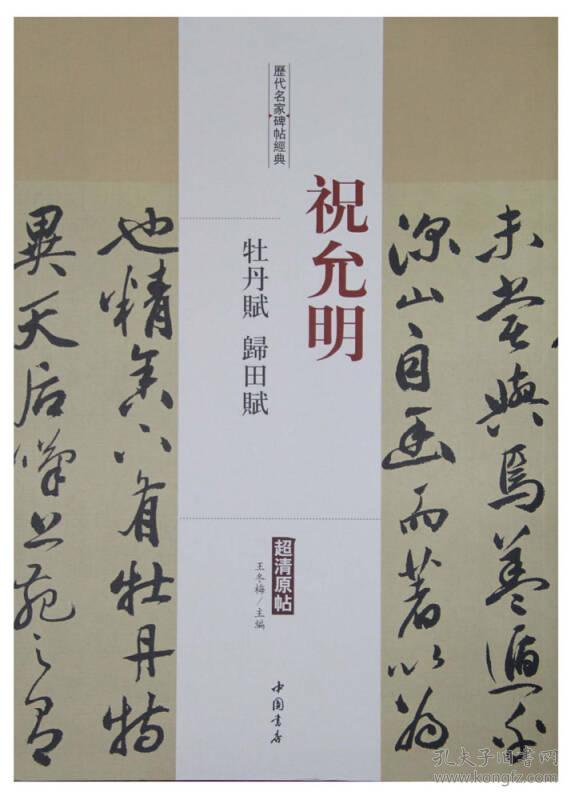 未嘗與焉蓋遁
深山自幽而著以為
歷代名家碑帖經典
祝允明
牡丹賦 歸田賦
超清原帖
王冬梅/主編
中国書店
也精舍下有牡丹特
異天后嘆上苑之有
孔夫子旧書网
www.kongfz.com